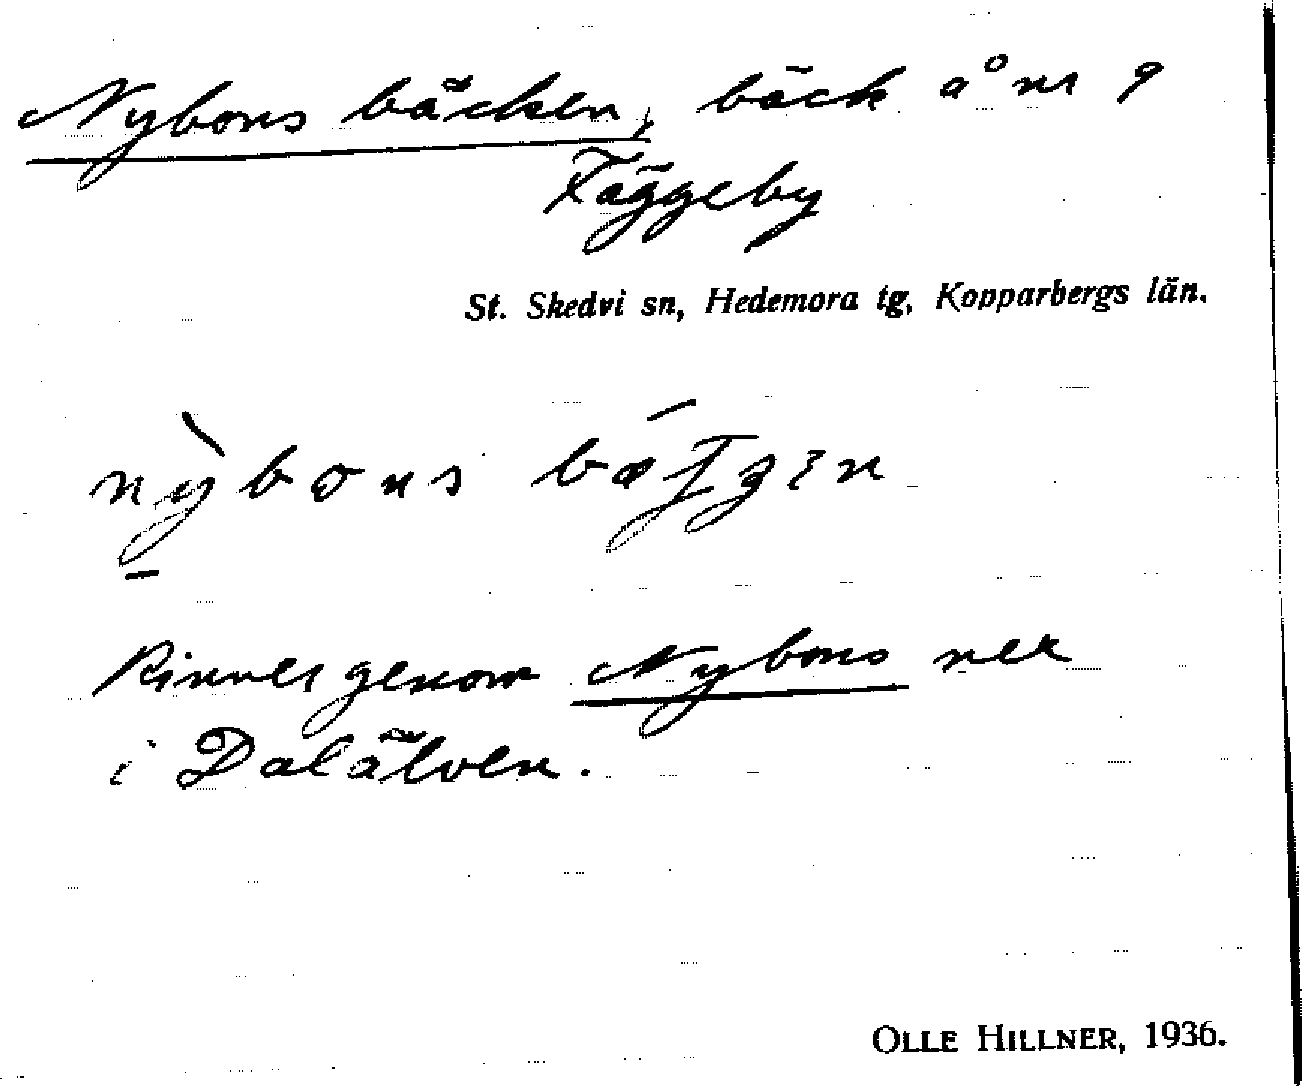 Nybons bäcken, bäck å nr 9
Fäggeby
St. Skedvi sn, Hedemora tg, Kopparbergs län.
nỳbons
Rinner genom Nybons ner
i Dalälven.
OLLE HILLNER, 1936.